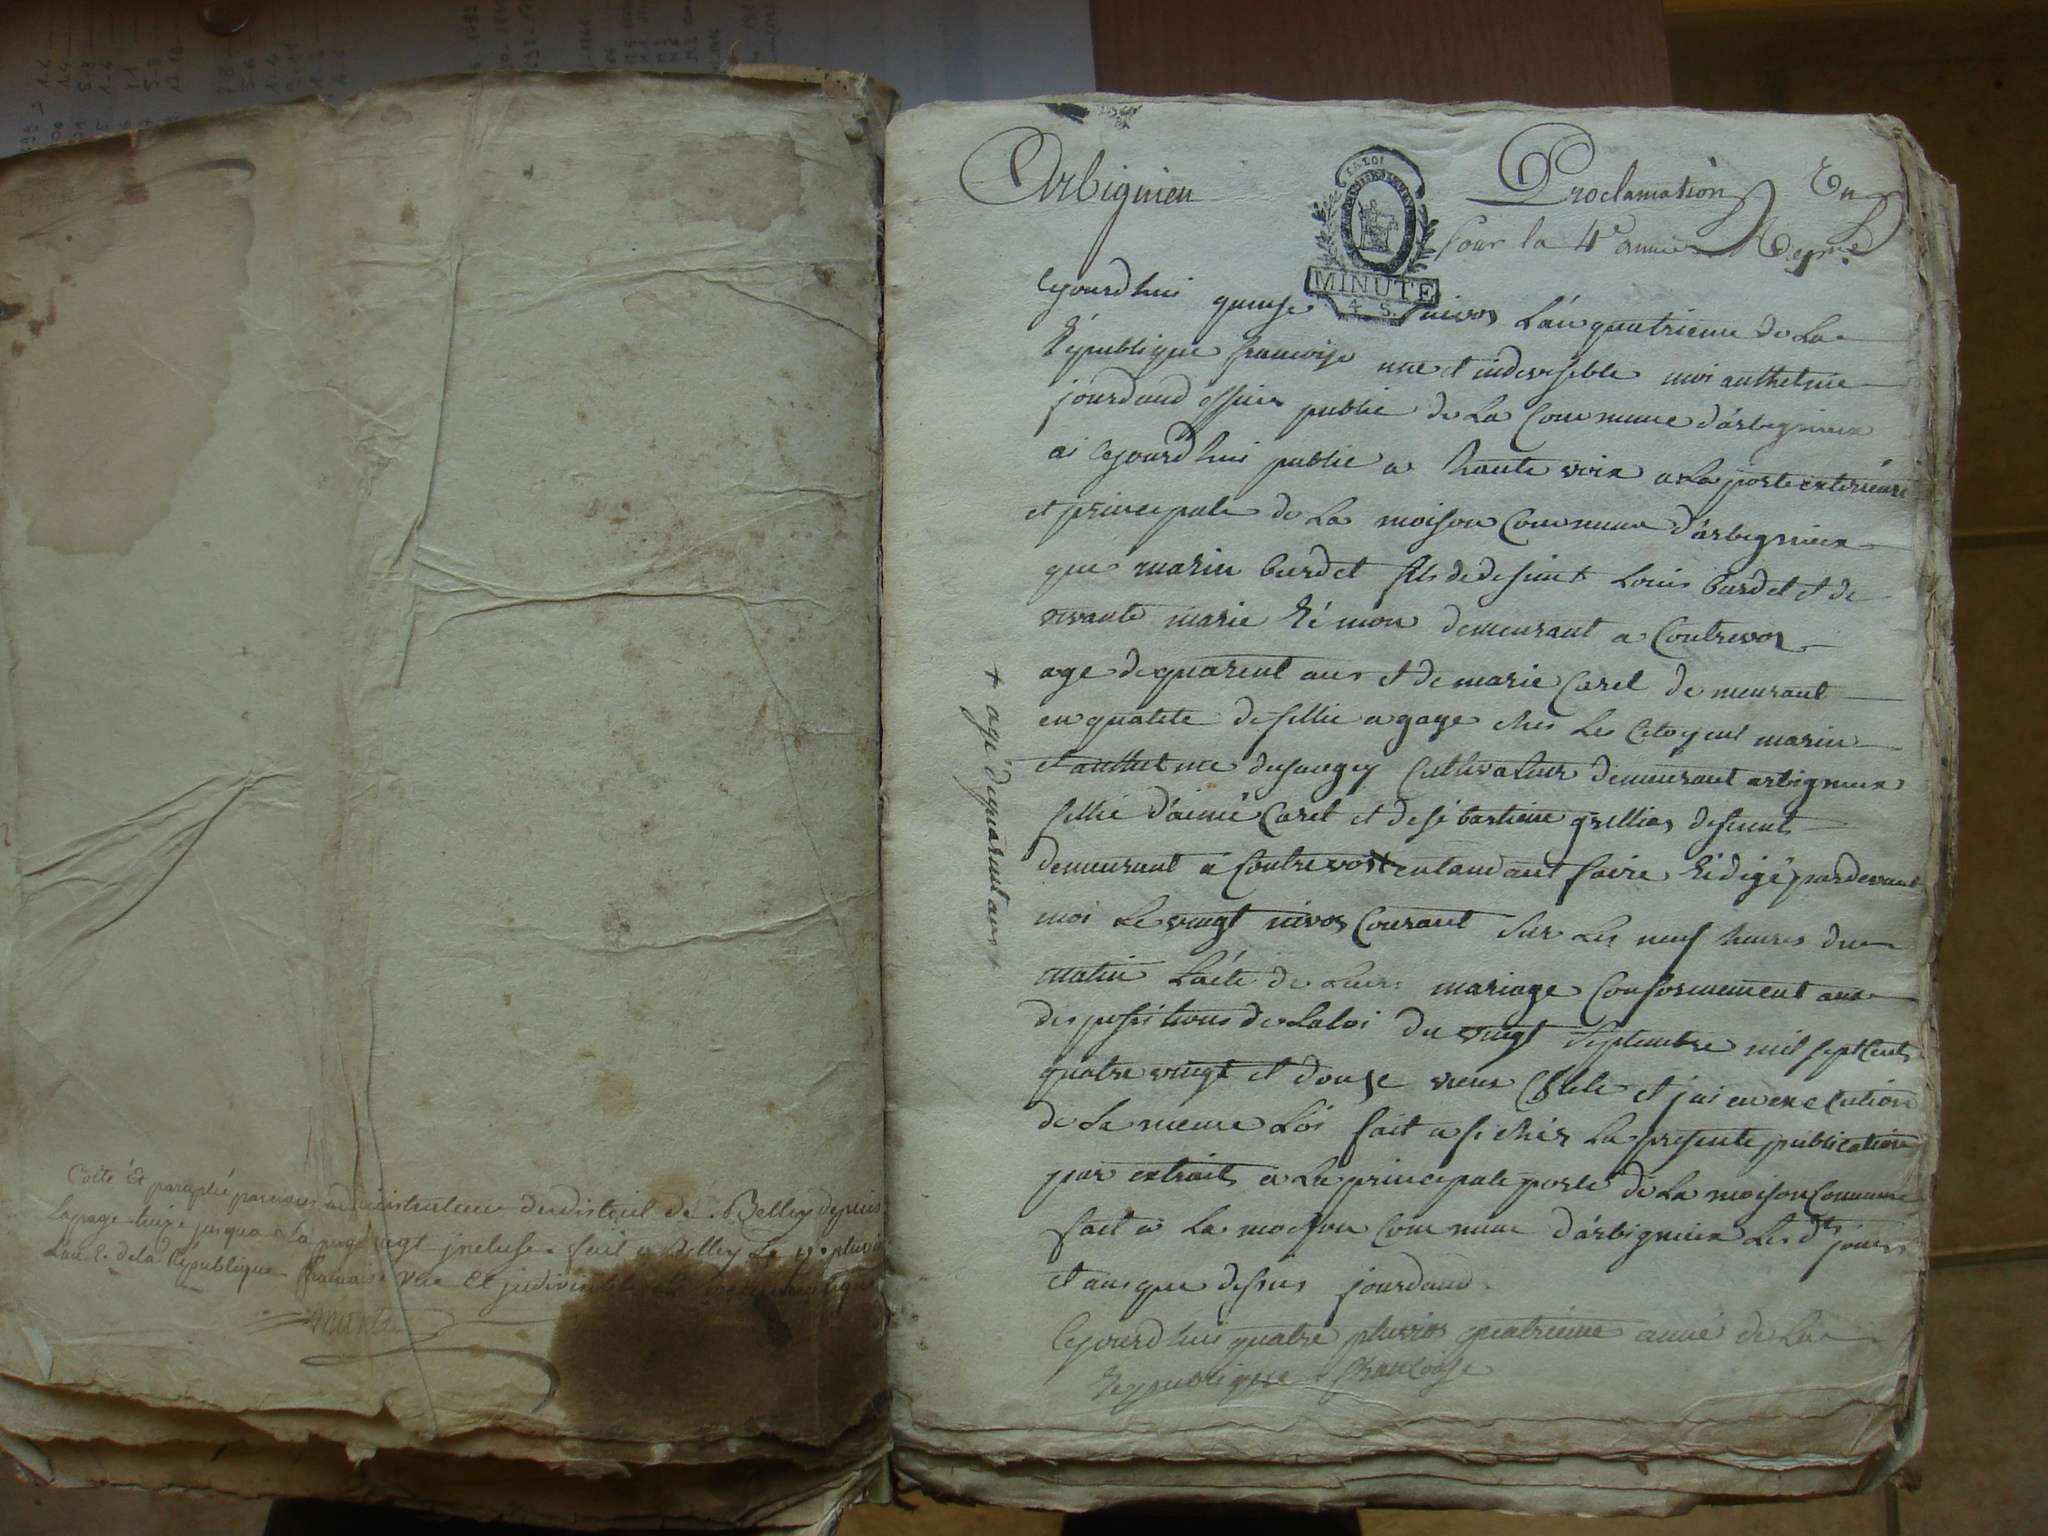 Cotté et paraphé par nous administrateur du district de Belley depuis
la page jusqua à la page vingt incluse. fait à Belley le 19e pluviose
L'an 2e de la République française une et indivisible
Arbignieu
LA LOI
MINUTE
4 S.
Proclamation En
Pour la 4e année
Cejourdhui quinse nivos L'an quatrieme de La
République francoise une et indivisible moi anthelme
jourdand officier public de La Commune d'arbignieux
ai cejourd'hui publié a haute voix a La porte exterieure
et principale de La moison Commune d'arbignieux
que marin burdet fils de defunt Louis burdet et de
vivante marie Rémon demeurant a Contrevos
age de quarent ans et de marie Caret demeurant
en qualité de fillie a gage ches Les Citoyens marin
et anthelme dusaugey Cultivateur demeurant arbignieux
fillie d'aimé Caret et de sébastiene grillier defunts
demeurant a Contrevost + entandant faire Rédigé pardevant
moi Le vingt nivos Courant sur Les neuf heures du
matin L'acte de Leurs mariage Conformement aux
dispositions de La loi du vingt septembre mil sept Cents
quatre vingt et douse vieux stile et j'ai en execution
de La meme Loi fait afichér La presente publication
par extrait a La principale porte de La moison Commune
fait a La moison Commune d'arbignieux Les dts jours
et ans que dessus jourdand
+ agé de quarent ans +
Cejourdhui quatre pluvios quatrieme anné de La
Republique francoise